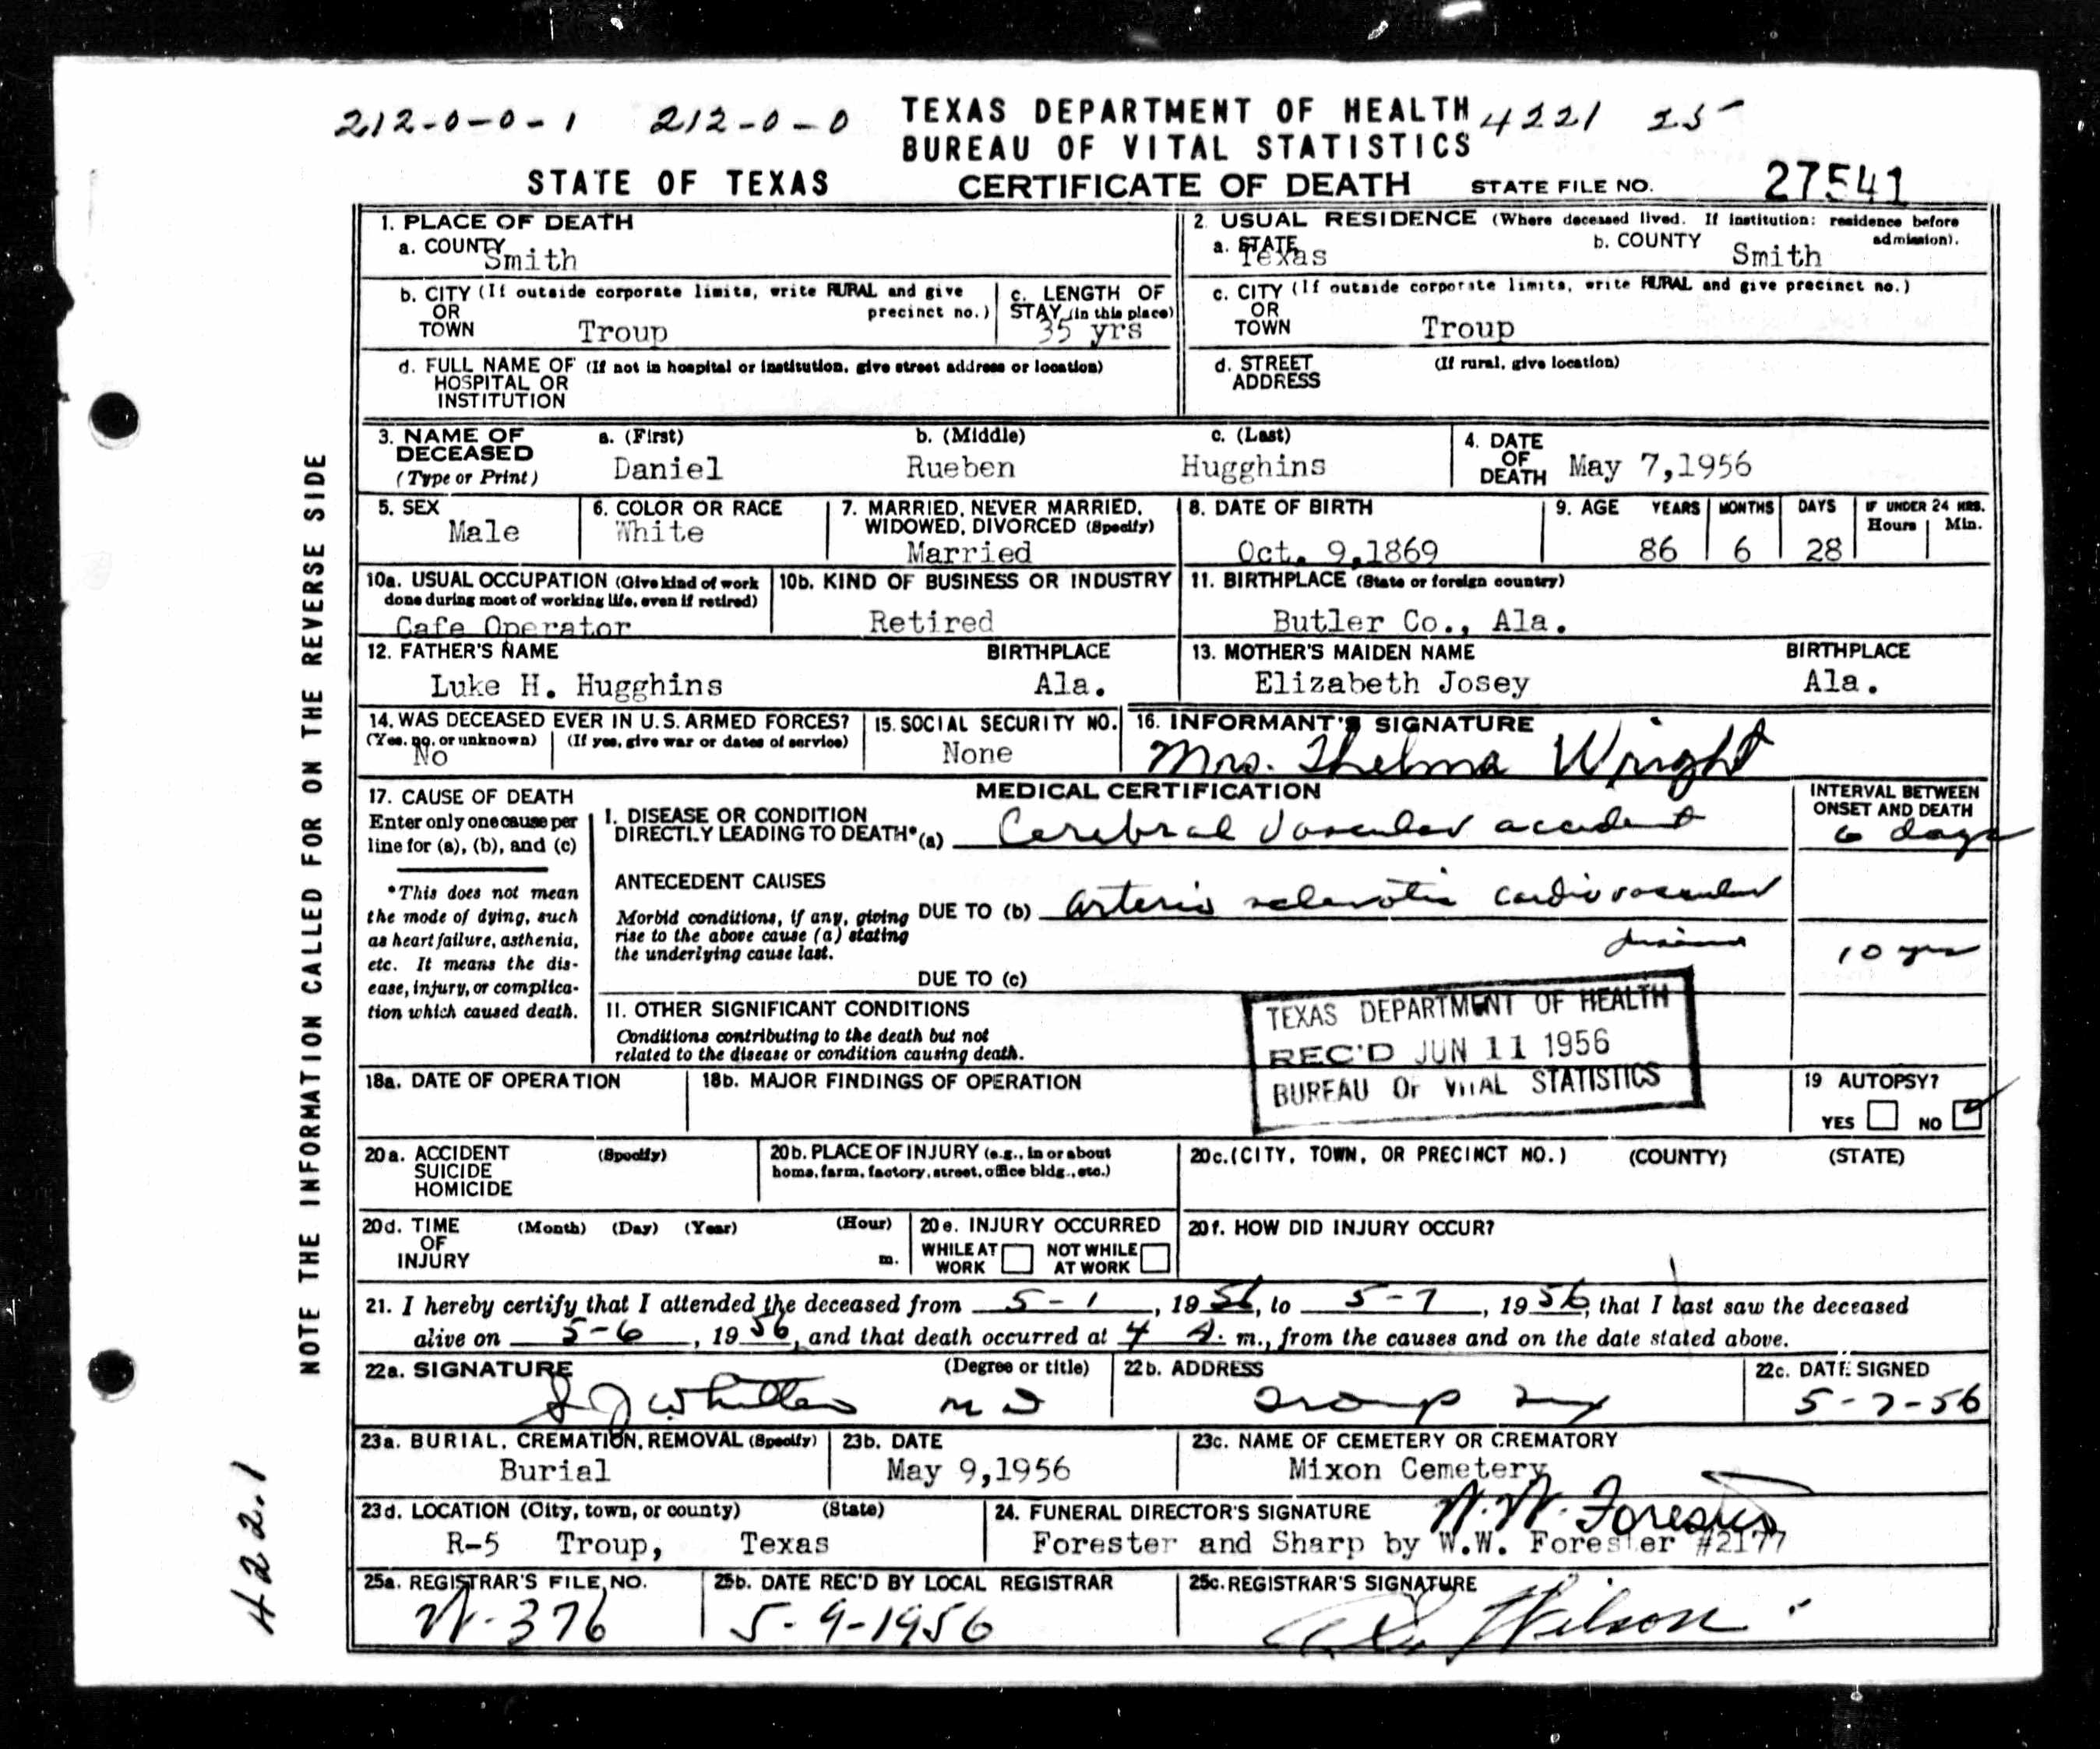 212-0-0-1 212-0-0
TEXAS DEPARTMENT OF HEALTH 4221 25
BUREAU OF VITAL STATISTICS
STATE OF TEXAS CERTIFICATE OF DEATH STATE FILE NO. 27541
1. PLACE OF DEATH
a. COUNTY
Smith
2. USUAL RESIDENCE (Where deceased lived. If institution: residence before admission).
a. STATE
Texas
b. COUNTY Smith
b. CITY (If outside corporate limits, write RURAL and give precinct no.)
OR
TOWN Troup
c. LENGTH OF
STAY (in this place)
35 yrs
c. CITY (If outside corporate limits, write RURAL and give precinct no.)
OR
TOWN Troup
d. FULL NAME OF (If not in hospital or institution, give street address or location)
HOSPITAL OR
INSTITUTION
d. STREET (If rural, give location)
ADDRESS
3. NAME OF DECEASED
(Type or Print)
a. (First) b. (Middle) c. (Last)
Daniel Rueben Hugghins
4. DATE
OF
DEATH May 7,1956
5. SEX
Male
6. COLOR OR RACE
White
7. MARRIED, NEVER MARRIED,
WIDOWED, DIVORCED (Specify)
Married
8. DATE OF BIRTH
Oct. 9,1869
9. AGE YEARS MONTHS DAYS IF UNDER 24 HRS.
Hours Min.
86 6 28
10a. USUAL OCCUPATION (Give kind of work
done during most of working life, even if retired)
Cafe Operator
10b. KIND OF BUSINESS OR INDUSTRY
Retired
11. BIRTHPLACE (State or foreign country)
Butler Co., Ala.
12. FATHER'S NAME BIRTHPLACE
Luke H. Hugghins Ala.
13. MOTHER'S MAIDEN NAME BIRTHPLACE
Elizabeth Josey Ala.
14. WAS DECEASED EVER IN U.S. ARMED FORCES?
(Yes, no, or unknown) (If yes, give war or dates of service)
No
15. SOCIAL SECURITY NO.
None
16. INFORMANT'S SIGNATURE
Mrs. Thelma Wright
17. CAUSE OF DEATH
Enter only one cause per
line for (a), (b), and (c)
*This does not mean
the mode of dying, such
as heart failure, asthenia,
etc. It means the dis-
ease, injury, or complica-
tion which caused death.
MEDICAL CERTIFICATION
INTERVAL BETWEEN
ONSET AND DEATH
I. DISEASE OR CONDITION
DIRECTLY LEADING TO DEATH* (a) Cerebral Vascular accident
6 days
ANTECEDENT CAUSES
Morbid conditions, if any, giving
rise to the above cause (a) stating
the underlying cause last.
DUE TO (b) Arterio sclerotic cardiovascular
disease
10 yrs
DUE TO (c)
II. OTHER SIGNIFICANT CONDITIONS
Conditions contributing to the death but not
related to the disease or condition causing death.
TEXAS DEPARTMENT OF HEALTH
REC'D JUN 11 1956
BUREAU OF VITAL STATISTICS
18a. DATE OF OPERATION
18b. MAJOR FINDINGS OF OPERATION
19 AUTOPSY?
YES NO
20a. ACCIDENT (Specify)
SUICIDE
HOMICIDE
20b. PLACE OF INJURY (e.g., in or about
home, farm, factory, street, office bldg., etc.)
20c. (CITY, TOWN, OR PRECINCT NO.) (COUNTY) (STATE)
20d. TIME (Month) (Day) (Year) (Hour)
OF
INJURY m.
20e. INJURY OCCURRED
WHILE AT WORK NOT WHILE AT WORK
20f. HOW DID INJURY OCCUR?
21. I hereby certify that I attended the deceased from 5-1, 1956, to 5-7, 1956, that I last saw the deceased
alive on 5-6, 1956, and that death occurred at 4 A. m., from the causes and on the date stated above.
22a. SIGNATURE (Degree or title)
M D
22b. ADDRESS
Troup Tex
22c. DATE SIGNED
5-7-56
23a. BURIAL, CREMATION, REMOVAL (Specify)
Burial
23b. DATE
May 9,1956
23c. NAME OF CEMETERY OR CREMATORY
Mixon Cemetery
23d. LOCATION (City, town, or county) (State)
R-5 Troup, Texas
24. FUNERAL DIRECTOR'S SIGNATURE W.W. Forester
Forester and Sharp by W.W. Forester #2177
25a. REGISTRAR'S FILE NO.
N-376
25b. DATE REC'D BY LOCAL REGISTRAR
5-9-1956
25c. REGISTRAR'S SIGNATURE
Wilson
NOTE THE INFORMATION CALLED FOR ON THE REVERSE SIDE
422.1